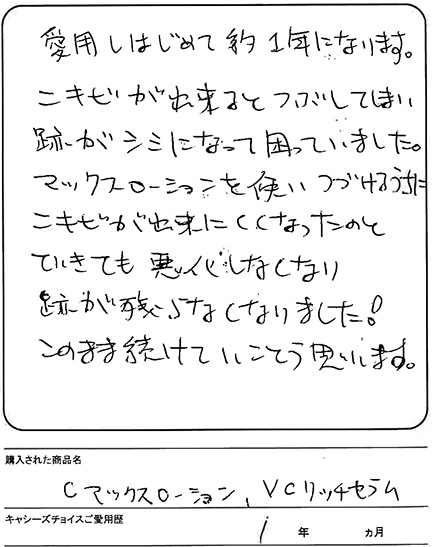 愛用しはじめて約1年になります。
ニキビが出来るとつぶしてしまい
跡がシミになって困っていました。
マックスローションを使いつづけるうちに
ニキビが出来にくくなったのと
できても悪化しなくなり
跡が残らなくなりました!
このまま続けていこうと思います。
購入された商品名
Cマックスローション, VCリッチセラム
キャシーズチョイスご愛用歴
1年 ヵ月